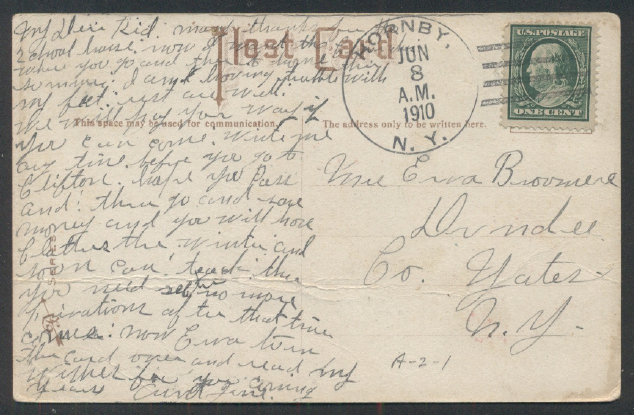 My Dear Kid. many thanks for the
school house. now
where you go and
summer. I am having trouble with
my feet. rest are well.
you can come. write me
any time before you go to
Clifton. hope you pass
and then go and save
money and you will have
clothes the winter and
soon can teach then
you need no more
privations after that time
comes. now Erva turn
the card over and read my
wishes for you coming
years
Post Card
This space may be used for communication.
The address only to be written here.
HORNBY,
JUN
8
A.M.
1910
N. Y.
U.S. POSTAGE
ONE CENT
Miss Erva Broomere
Dundee
Co. Yates
N.Y.
A-2-1